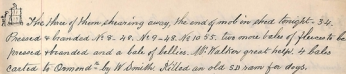 The three of them shearing away, the end of mob in shed tonight - 34.
Pressed & branded No 8 - 48. No 9 - 48. No 10 55. two more bales of fleeces to be
pressed & branded and a bale of bellies. Mr Walker great help. 4 bales
carted to Ormond by W Smith. Killed an old SD ram for dogs.